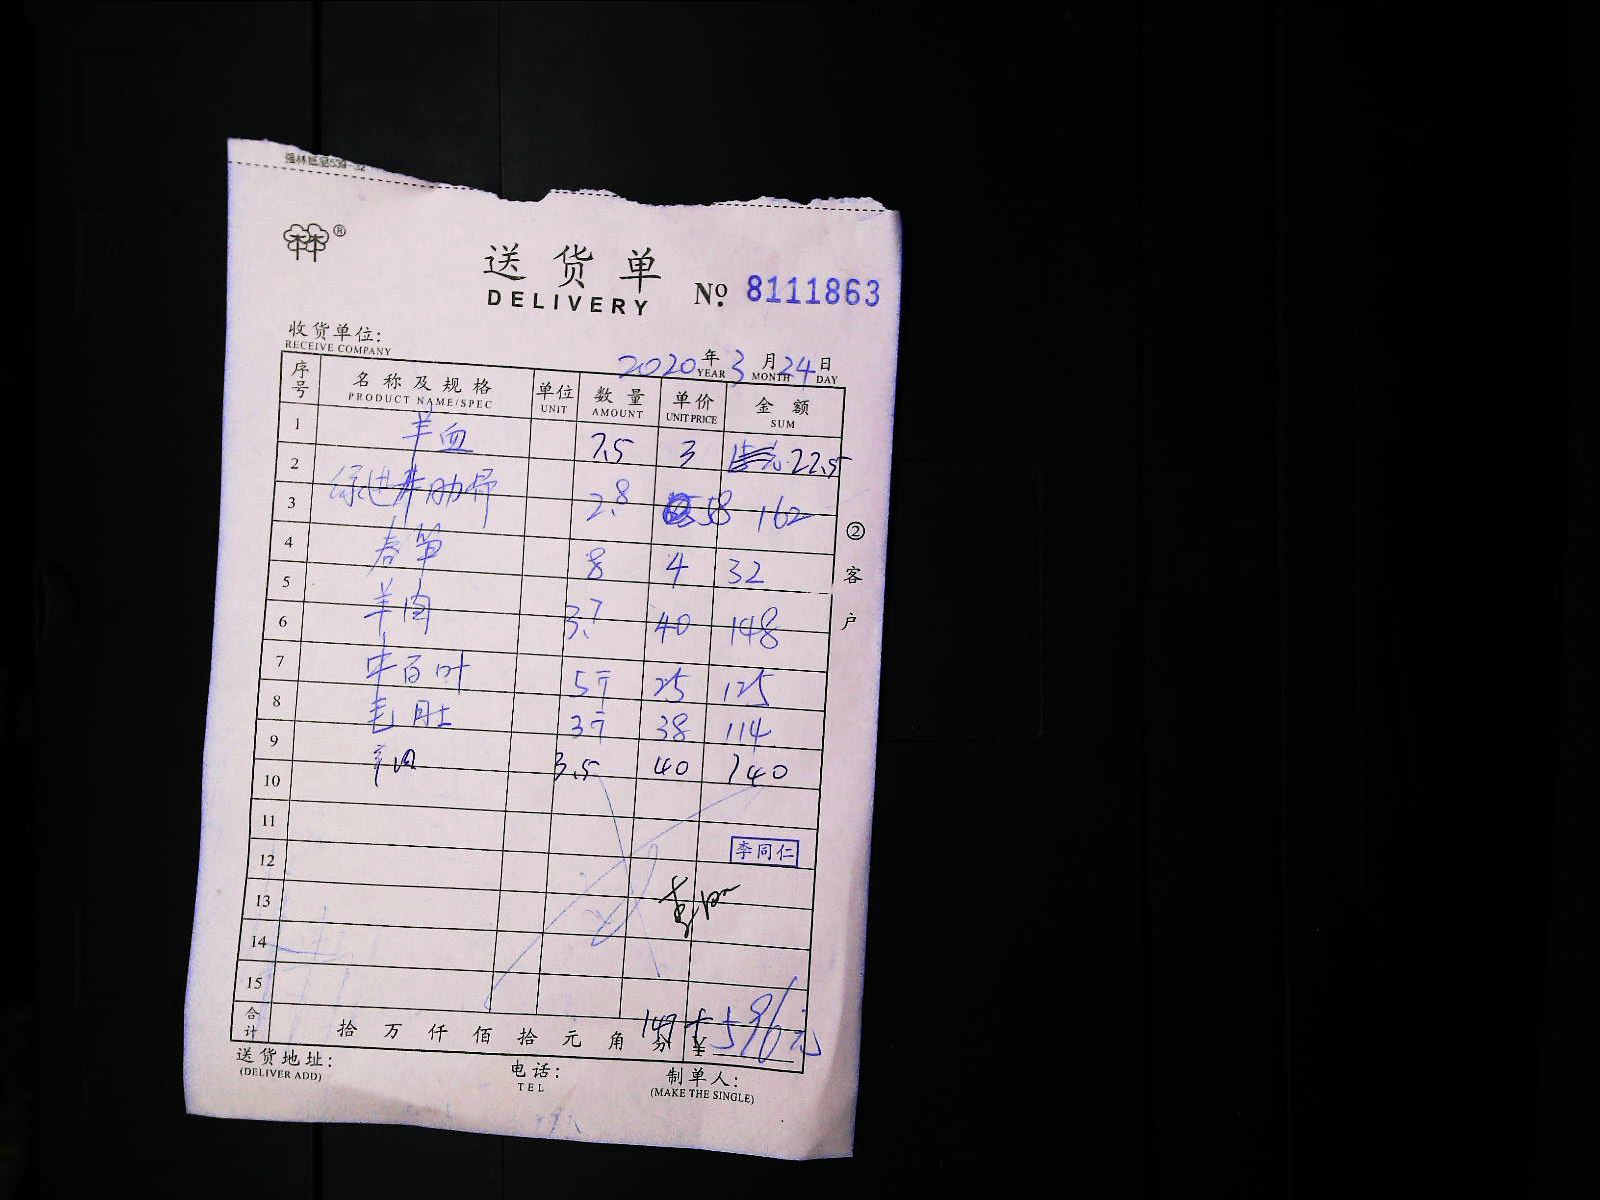 强林纸品539-32
林林®
送货单
DELIVERY
№ 8111863
收货单位:
RECEIVE COMPANY
2020 年 3 月 24 日
YEAR MONTH DAY
序号 名称及规格 单位 数量 单价 金额
PRODUCT NAME/SPEC UNIT AMOUNT UNIT PRICE SUM
1 羊血 7.5 3 22.5
2
3 肋骨 2.8 58 162
4 春笋 8 4 32
5
6 羊肉 3.7 40 148
7 牛百叶 5斤 25 125
8 毛肚 3斤 38 114
9
10 羊肉 3.5 40 140
11
12 李同仁
13
14
15
合计 拾 万 仟 佰 拾 元 角 分 ¥ 596元
送货地址: 电话: 制单人:
(DELIVER ADD) TEL (MAKE THE SINGLE)
②客户